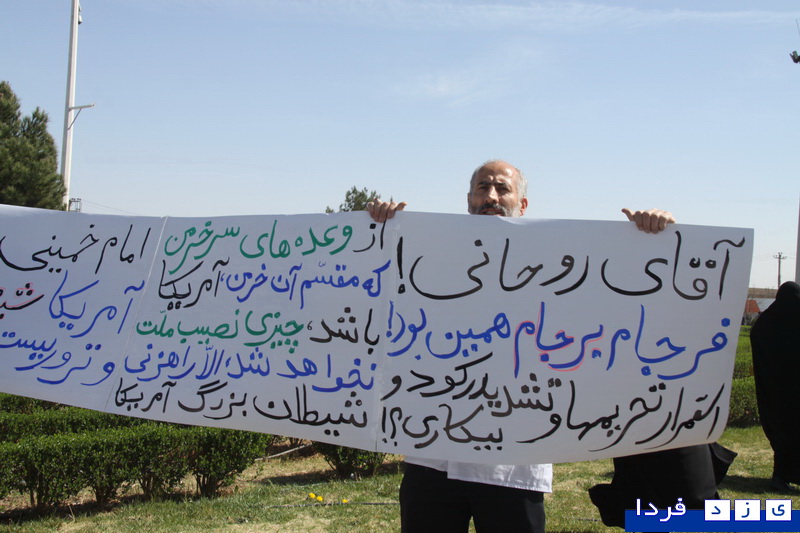 آقای روحانی!
فرجام برجام همین بود!
استمرار تحریمها و تشدید رکود و
بیکاری؟!
از وعده های سرخرمن
که مقسّم آن خرمن، آمریکا
باشد، چیزی نصیب ملّت
نخواهد شد، الّا راهزنی
شیطان بزرگ آمریکا
امام خمینی
آمریکا
و تروریست
یزد فردا